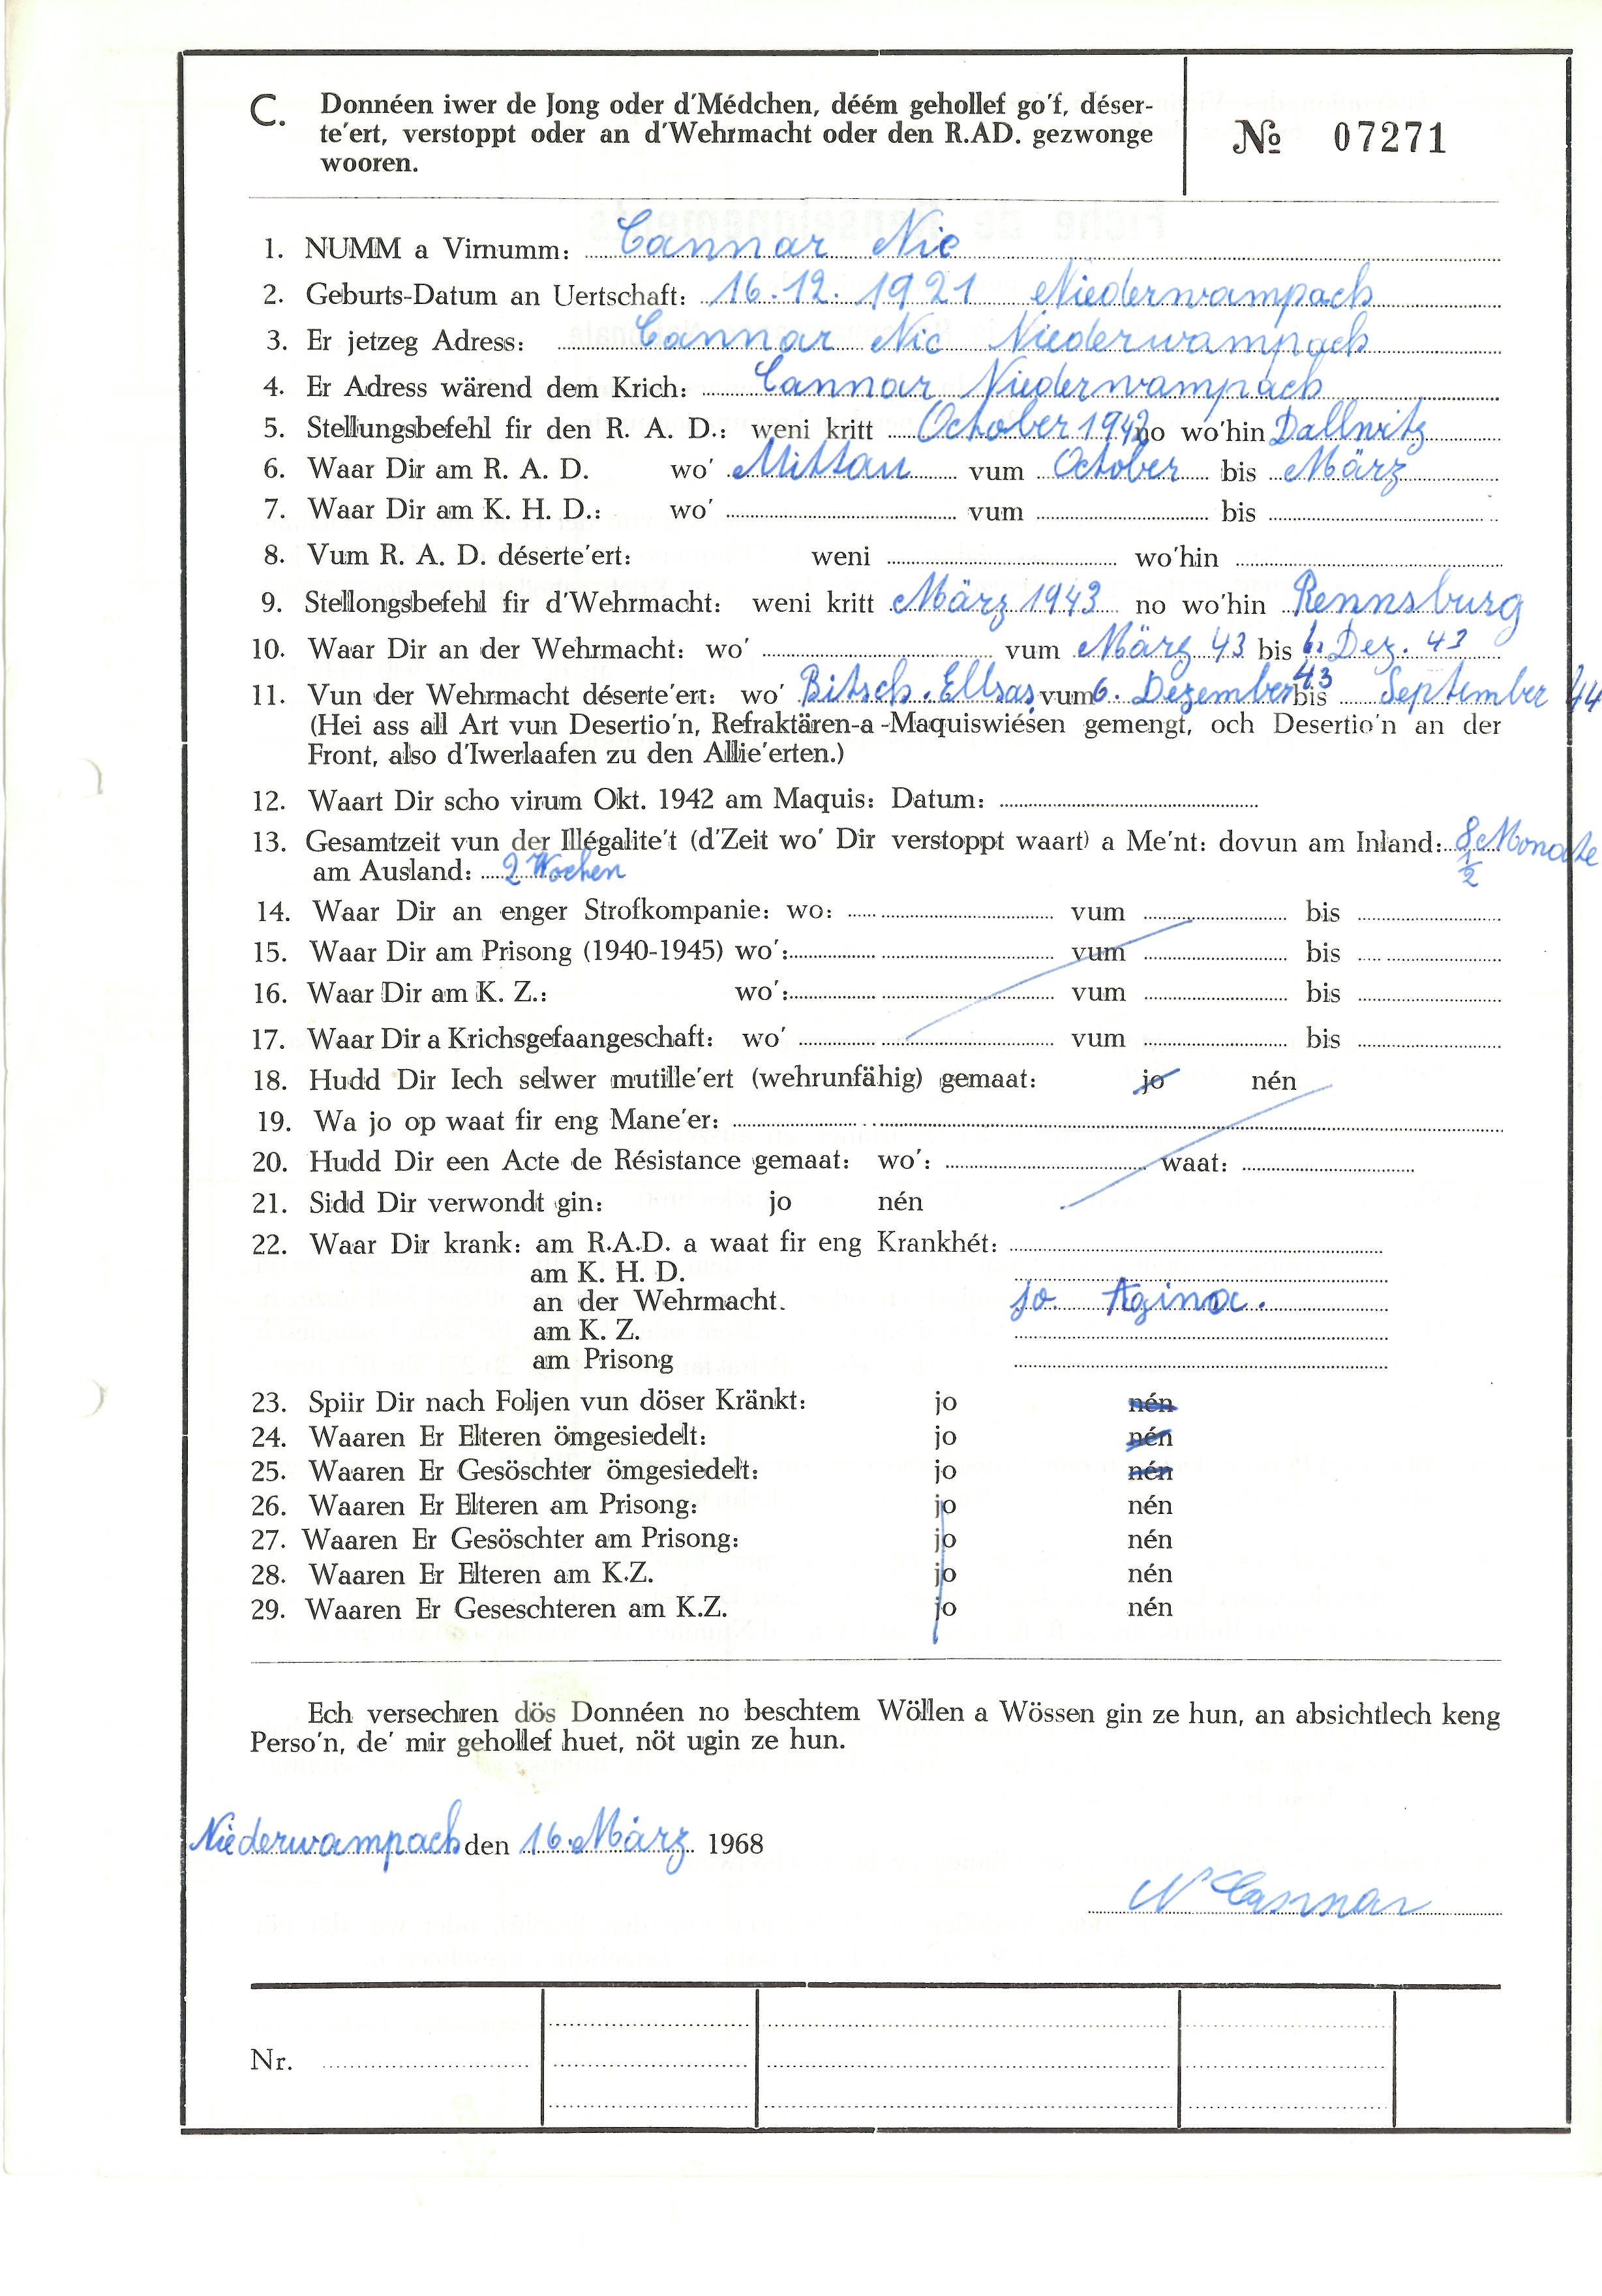 C. Donnéen iwer de Jong oder d'Médchen, déém gehollef go'f, déser-
te'ert, verstoppt oder an d'Wehrmacht oder den R.AD. gezwonge
wooren.
№ 07271
1. NUMM a Virnumm: Cannar Nic
2. Geburts-Datum an Uertschaft: 16.12.1921 Niederwampach
3. Er jetzeg Adress: Cannar Nic Niederwampach
4. Er Adress wärend dem Krich: Cannar Niederwampach
5. Stellungsbefehl fir den R. A. D.: weni kritt October 1942 no wo'hin Dallwitz
6. Waar Dir am R. A. D. wo' Mittau vum October bis März
7. Waar Dir am K. H. D.: wo' vum bis
8. Vum R. A. D. déserte'ert: weni wo'hin
9. Stellongsbefehl fir d'Wehrmacht: weni kritt März 1943 no wo'hin Rennsburg
10. Waar Dir an der Wehrmacht: wo' vum März 43 bis 6. Dez. 43
11. Vun der Wehrmacht déserte'ert: wo' Bitsch. Ellsas vum 6. Dezember 43 bis September 44
(Hei ass all Art vun Desertio'n, Refraktären-a-Maquiswiésen gemengt, och Desertio'n an der
Front, also d'Iwerlaafen zu den Allie'erten.)
12. Waart Dir scho virum Okt. 1942 am Maquis: Datum:
13. Gesamtzeit vun der Illégalite't (d'Zeit wo' Dir verstoppt waart) a Me'nt: dovun am Inland: 8 1/2 Monate
am Ausland: 2 Wochen
14. Waar Dir an enger Strofkompanie: wo: vum bis
15. Waar Dir am Prisong (1940-1945) wo': vum bis
16. Waar Dir am K. Z.: wo': vum bis
17. Waar Dir a Krichsgefaangeschaft: wo' vum bis
18. Hudd Dir Iech selwer mutille'ert (wehrunfähig) gemaat: jo nén
19. Wa jo op waat fir eng Mane'er:
20. Hudd Dir een Acte de Résistance gemaat: wo': waat:
21. Sidd Dir verwondt gin: jo nén
22. Waar Dir krank: am R.A.D. a waat fir eng Krankhét:
am K. H. D.
an der Wehrmacht. jo Agina.
am K. Z.
am Prisong
23. Spiir Dir nach Foljen vun döser Kränkt: jo nén
24. Waaren Er Elteren ömgesiedelt: jo nén
25. Waaren Er Gesöschter ömgesiedelt: jo nén
26. Waaren Er Elteren am Prisong: jo nén
27. Waaren Er Gesöschter am Prisong: jo nén
28. Waaren Er Elteren am K.Z. jo nén
29. Waaren Er Geseschteren am K.Z. jo nén
Ech versechren dös Donnéen no beschtem Wöllen a Wössen gin ze hun, an absichtlech keng
Perso'n, de' mir gehollef huet, nöt ugin ze hun.
Niederwampach den 16. März 1968
N Cannar
Nr.